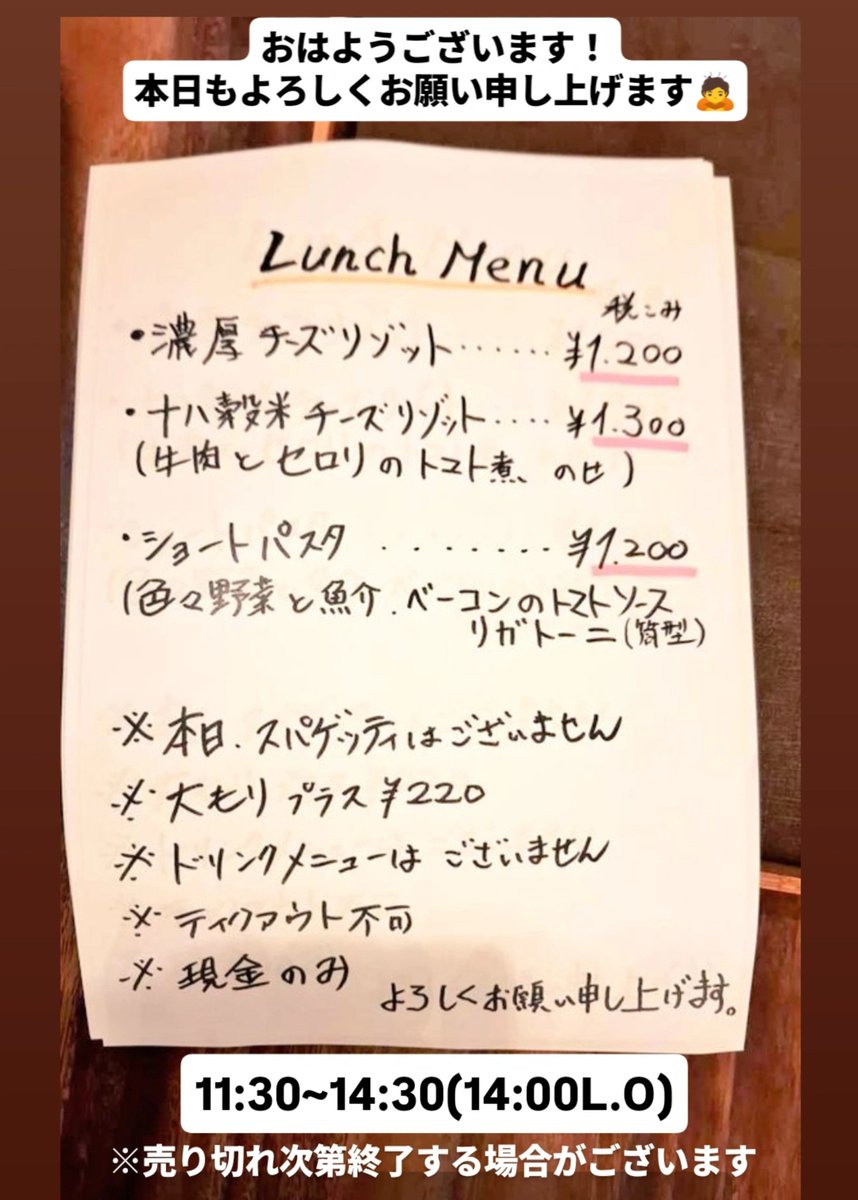 おはようございます！
本日もよろしくお願い申し上げます🙇
Lunch Menu
税こみ
・濃厚チーズリゾット······¥1.200
・十八穀米チーズリゾット····¥1.300
(牛肉とセロリのトマト煮、のせ)
・ショートパスタ ········¥1.200
(色々野菜と魚介、ベーコンのトマトソース
リガトーニ(筒型)
※本日、スパゲッティはございません
※大もりプラス¥220
※ドリンクメニューはございません
※ティクアウト不可
※現金のみ
よろしくお願い申し上げます。
11:30~14:30(14:00L.O)
※売り切れ次第終了する場合がございます